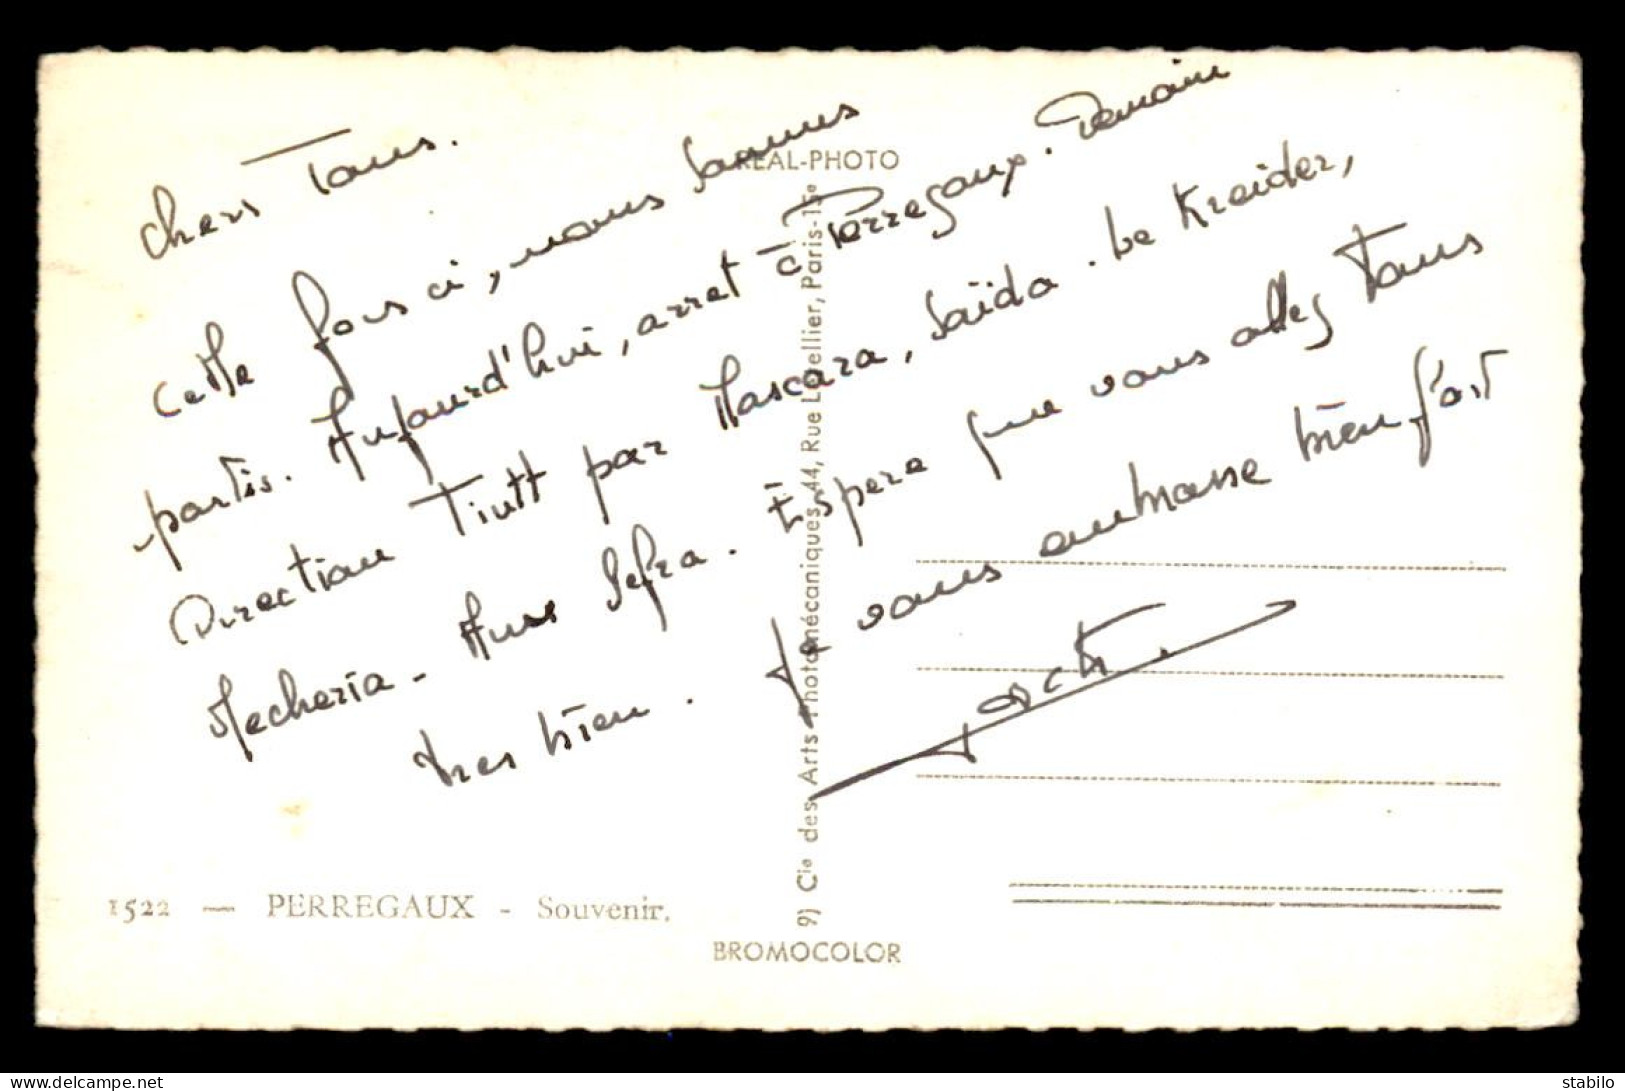 Chers Tous.
Cette fois ci, nous sommes
partis. Aujourd'hui, arret à Perregaux. Demain
Direction Tiutt par Mascara, Saïda. Le Kreider,
Mecheria - Ain Sefra. Espere que vous allez Tous
tres bien. Je vous embrasse bien fort
REAL-PHOTO
9) Cie des Arts Photomécaniques, 44, Rue Letellier, Paris-15e
1522 — PERREGAUX - Souvenir.
BROMOCOLOR
delcampe.net
stabilo